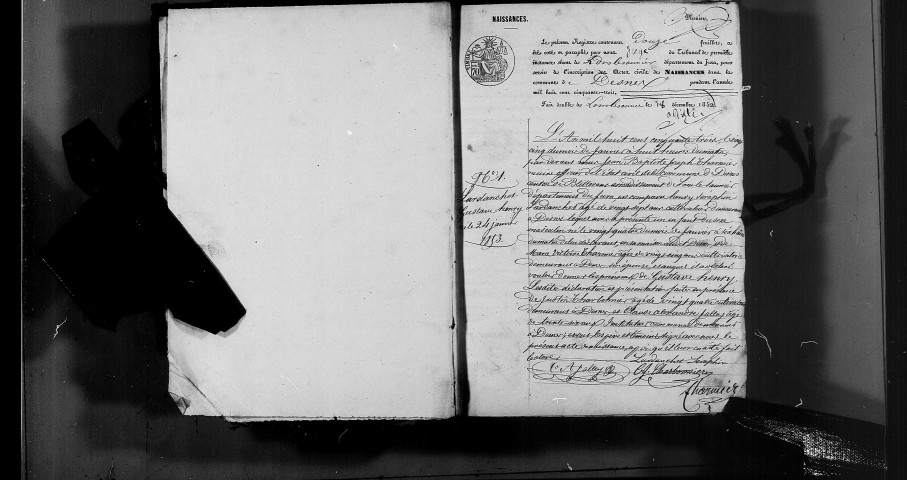 NAISSANCES.
Le présent Registre contenant Douze feuillets, a
été coté et paraphé par nous Juge du Tribunal de première
instance séant à Lons-le-Saunier département du Jura, pour
servir à l'inscription des Actes civils de NAISSANCES dans la
commune de Desnes pendant l'année
mil huit cent cinquante-trois.
Fait double à Lons-le-Saunier le décembre 1852
N° 1.
Lardanchet
Gustave henry
le 24 janvier
1853.
L'An mil huit cent cinquante trois, le vingt
cinq du mois de janvier à huit heures du matin
par devant nous Jean Baptiste Joseph
maire officier de l'état civil de la Commune de Desnes
canton de Bletterans arrondissement de Lons le Saunier
département du Jura, est comparu henry Seraphin
Lardanchet âgé de vingt sept ans, cultivateur demeurant
à Desnes lequel nous a présenté un enfant du sexe
masculin né le vingt quatre du mois de janvier à six heures
du matin de lui déclarant, en sa maison à Desnes et de
Marie âgée de vingt cinq ans cultivatrice
demeurant à Desnes son épouse, et auquel il a déclaré
vouloir donner les prénoms de Gustave henry
Ladite déclaration et présentation faites en présence
de Justin âgé de vingt quatre cultivateur
demeurant à Desnes et Claude alexandre âgé
de trente deux ans Instituteur communal demeurant
à Desnes, et ont les père et témoins signé avec nous le
présent acte de naissance, après qu'il leur en a été fait
lecture
Lardanchet Seraphin